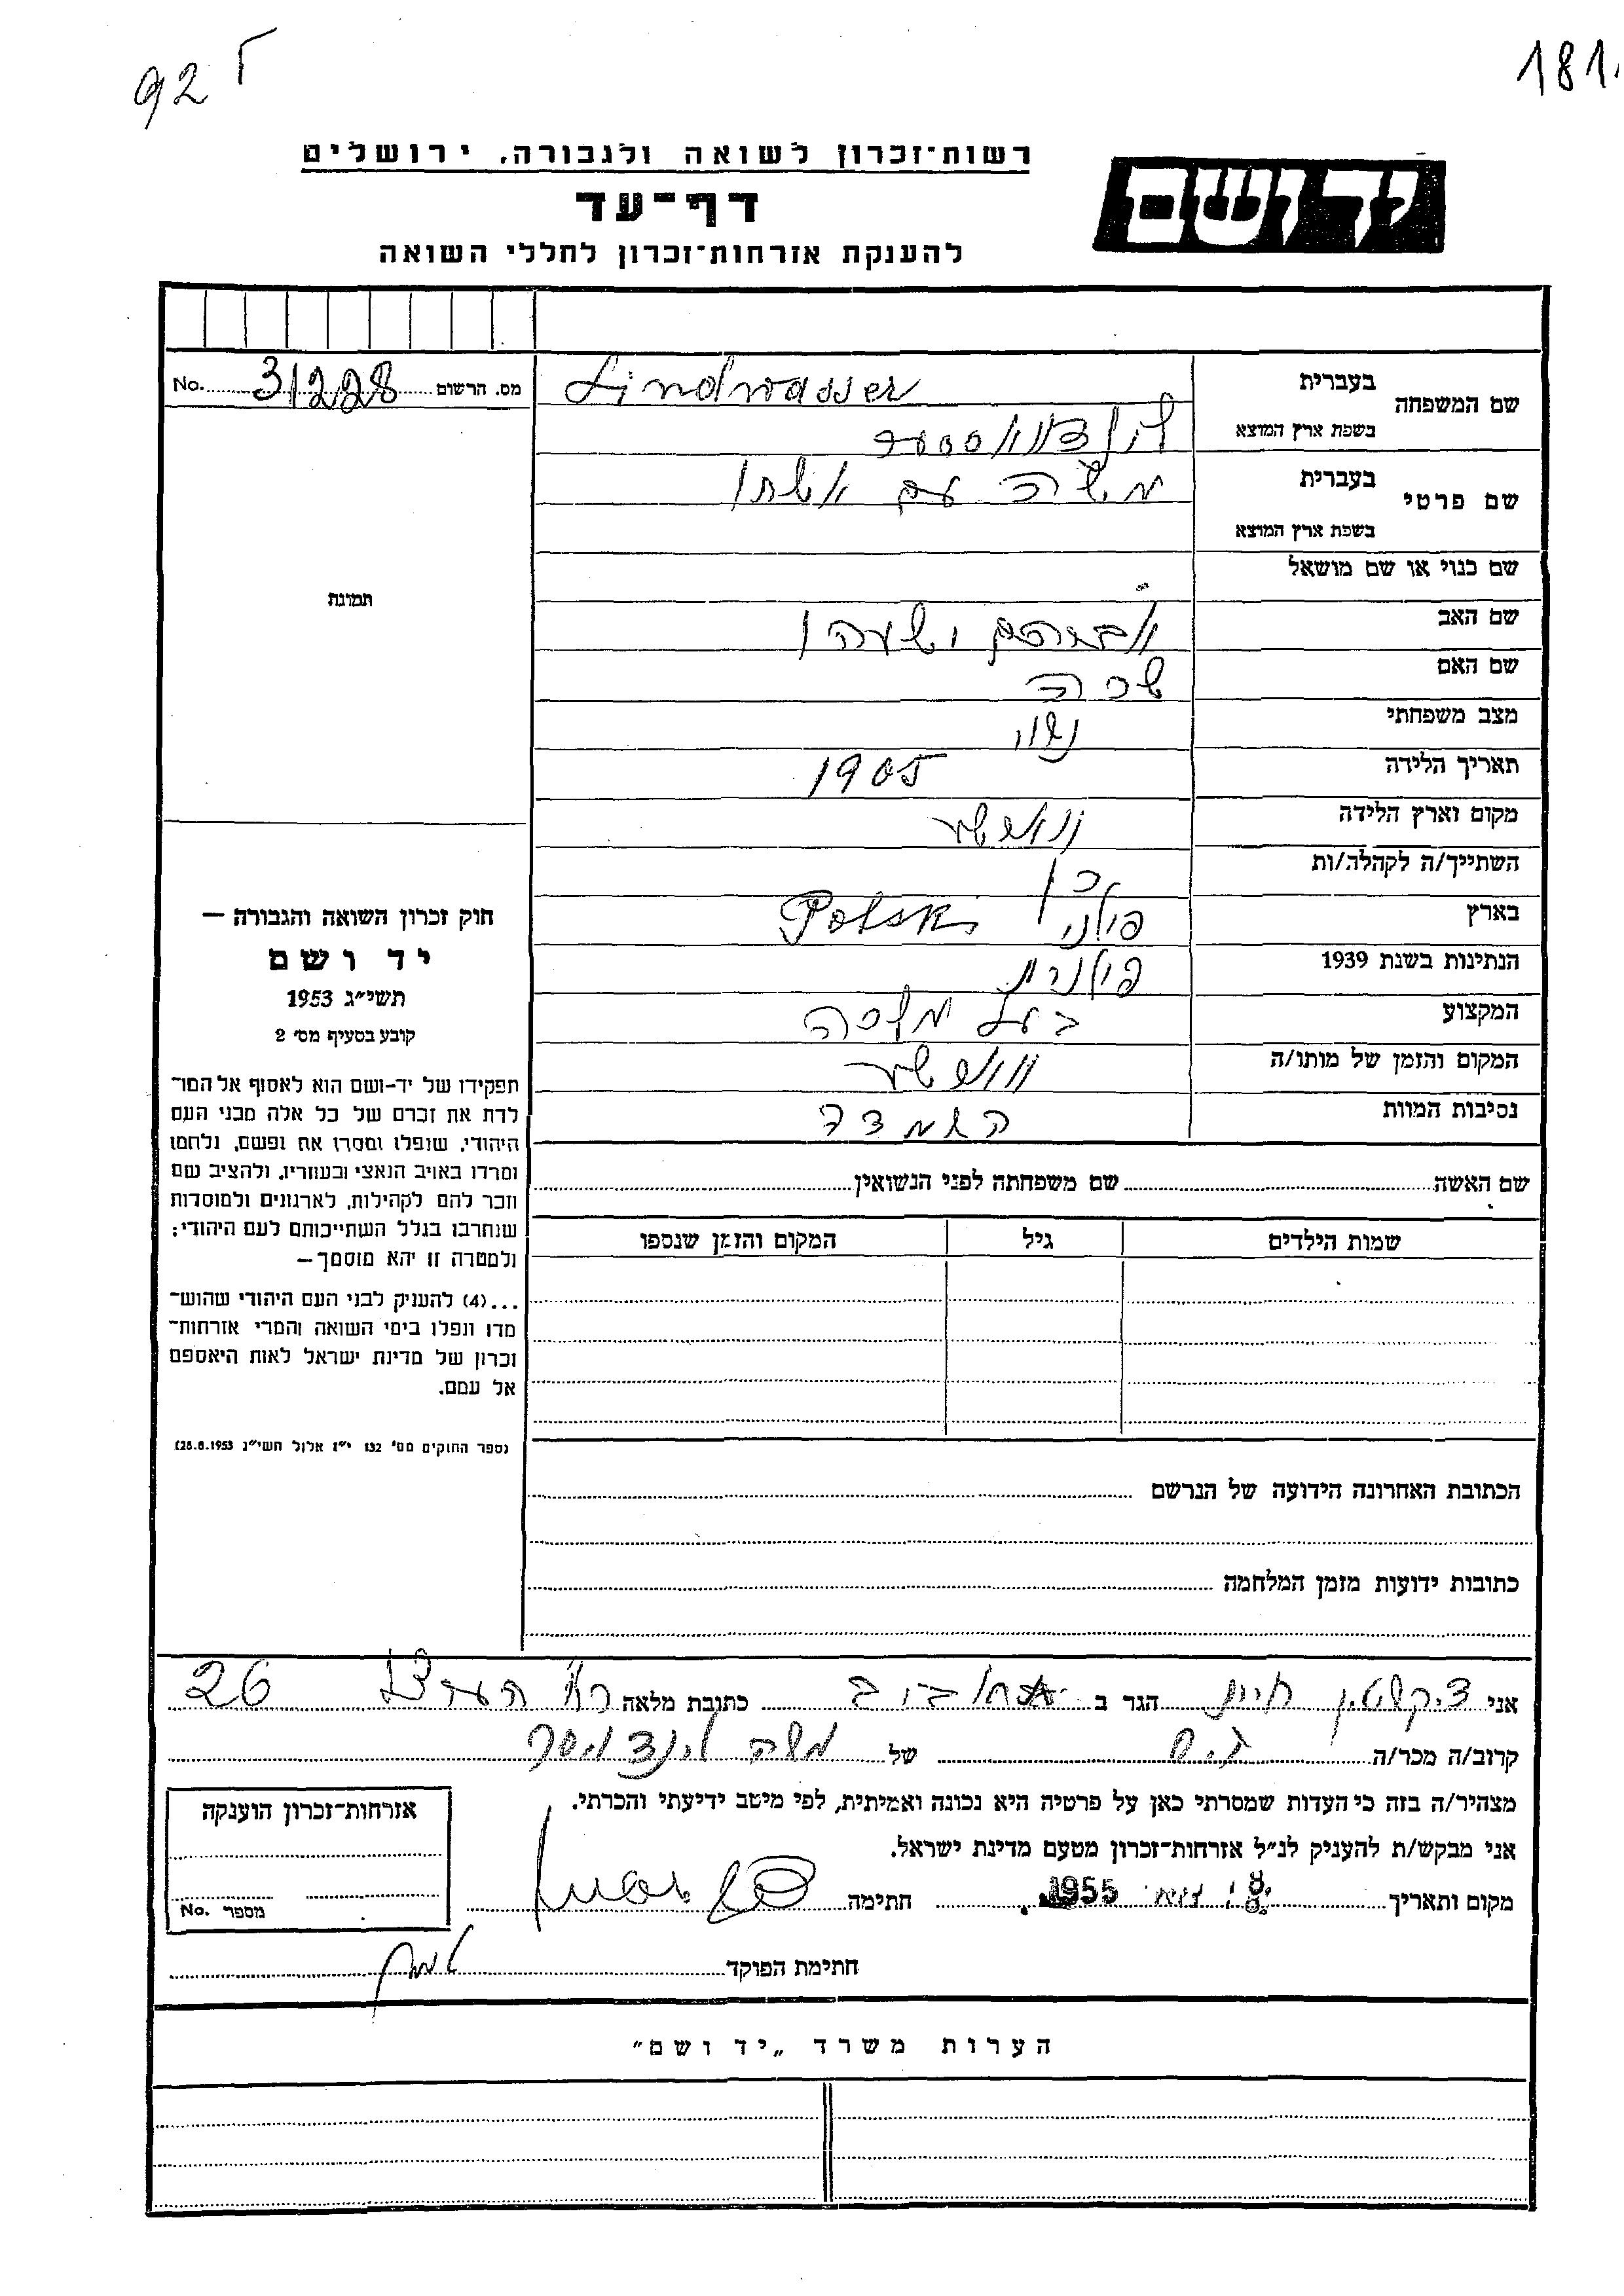 92 ר
181
רשות־זכרון לשואה ולגבורה, ירושלים
יד ושם
דף־עד
להענקת אזרחות־זכרון לחללי השואה
מס. הרשום 31228 No.
שם המשפחה
בעברית Lindwasser
בשפת ארץ המוצא
שם פרטי
בעברית משה עם אשתו
בשפת ארץ המוצא
שם כנוי או שם מושאל
שם האב אברהם ישעהו
שם האם שרה
מצב משפחתי נשוי
תאריך הלידה 1905
מקום וארץ הלידה
השתייך/ה לקהלה/ות כן
בארץ Polski
הנתינות בשנת 1939 פולנית
המקצוע בעל
המקום והזמן של מותו/ה
נסיבות המוות השמדה
שם האשה שם משפחתה לפני הנשואין
שמות הילדים גיל המקום והזמן שנספו
הכתובת האחרונה הידועה של הנרשם
כתובות ידועות מזמן המלחמה
תמונה
חוק זכרון השואה והגבורה —
יד ושם
תשי״ג 1953
קובע בסעיף מס׳ 2
תפקידו של יד-ושם הוא לאסוף אל המו־
לדת את זכרם של כל אלה מבני העם
היהודי, שנפלו ומסרו את נפשם, נלחמו
ומרדו באויב הנאצי ובעוזריו, ולהציב שם
וזכר להם לקהילות, לארגונים ולמוסדות
שנחרבו בגלל השתייכותם לעם היהודי;
ולמטרה זו יהא מוסמך—
...(4) להעניק לבני העם היהודי שהוש־
מדו ונפלו בימי השואה והמרי אזרחות־
זכרון של מדינת ישראל לאות היאספם
אל עמם.
(ספר החוקים מס׳ 132 י״ז אלול תשי״ג 28.8.1953)
אני הגר ב תל אביב כתובת מלאה 26
קרוב/ה מכר/ה גיס של משה לינדווסר
מצהיר/ה בזה כי העדות שמסרתי כאן על פרטיה היא נכונה ואמיתית, לפי מיטב ידיעתי והכרתי.
אני מבקש/ת להעניק לנ״ל אזרחות־זכרון מטעם מדינת ישראל.
מקום ותאריך 1955 חתימה
חתימת הפוקד
אזרחות־זכרון הוענקה
מספר No.
הערות משרד „יד ושם״